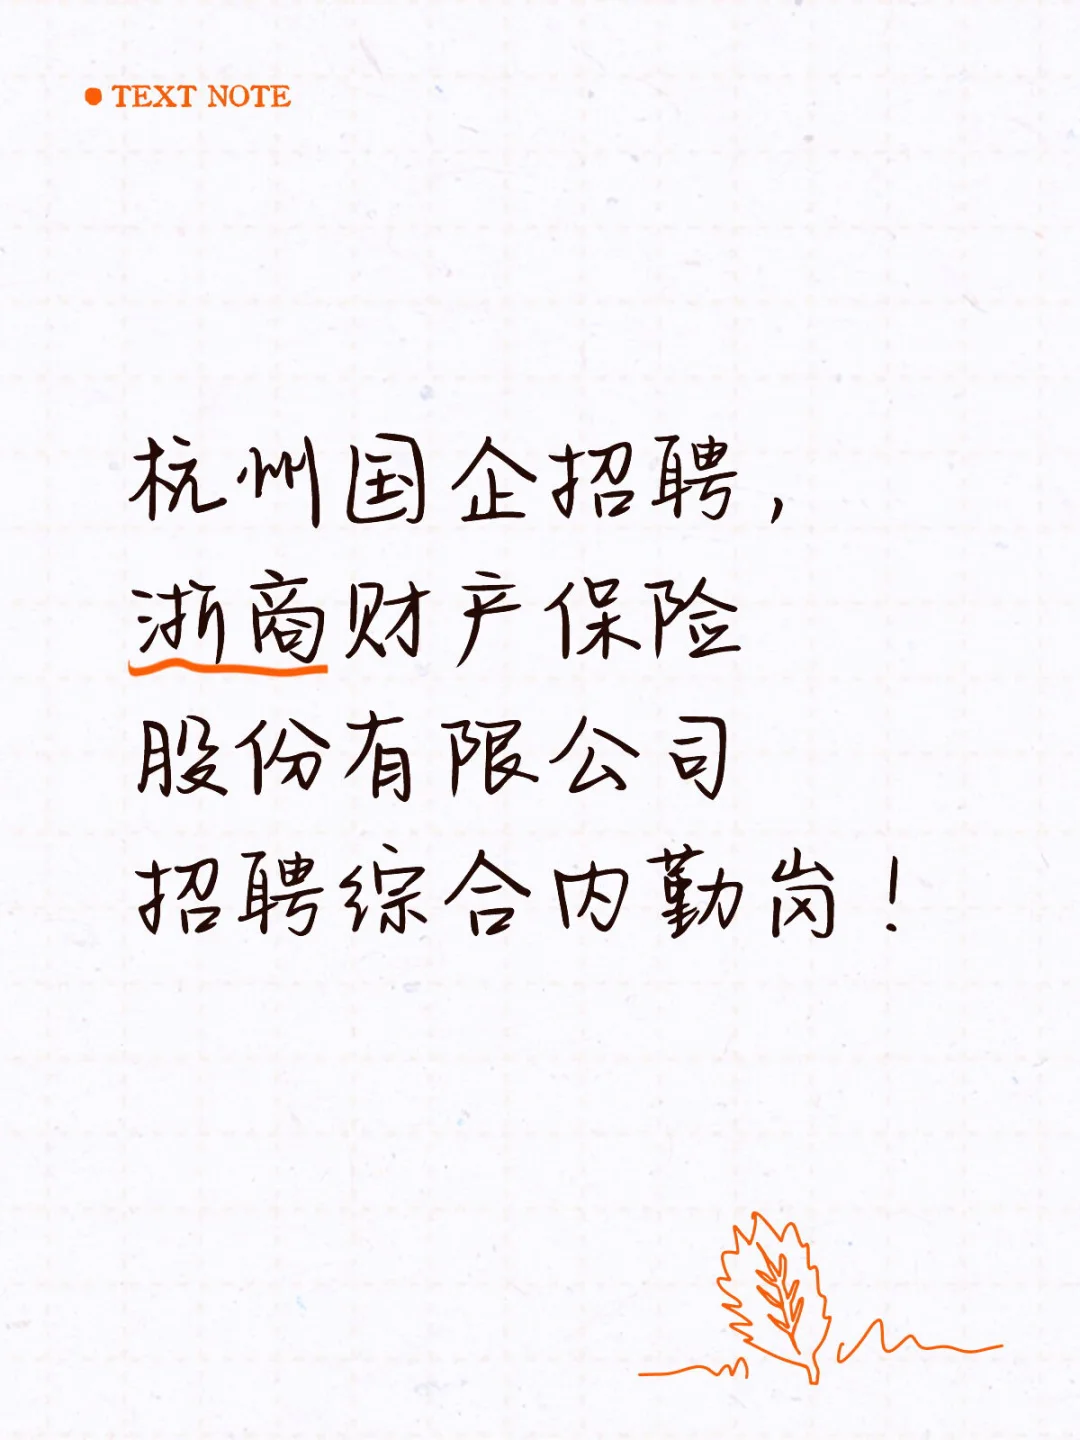 TEXT NOTE
杭州国企招聘，
浙商财产保险
股份有限公司
招聘综合内勤岗！